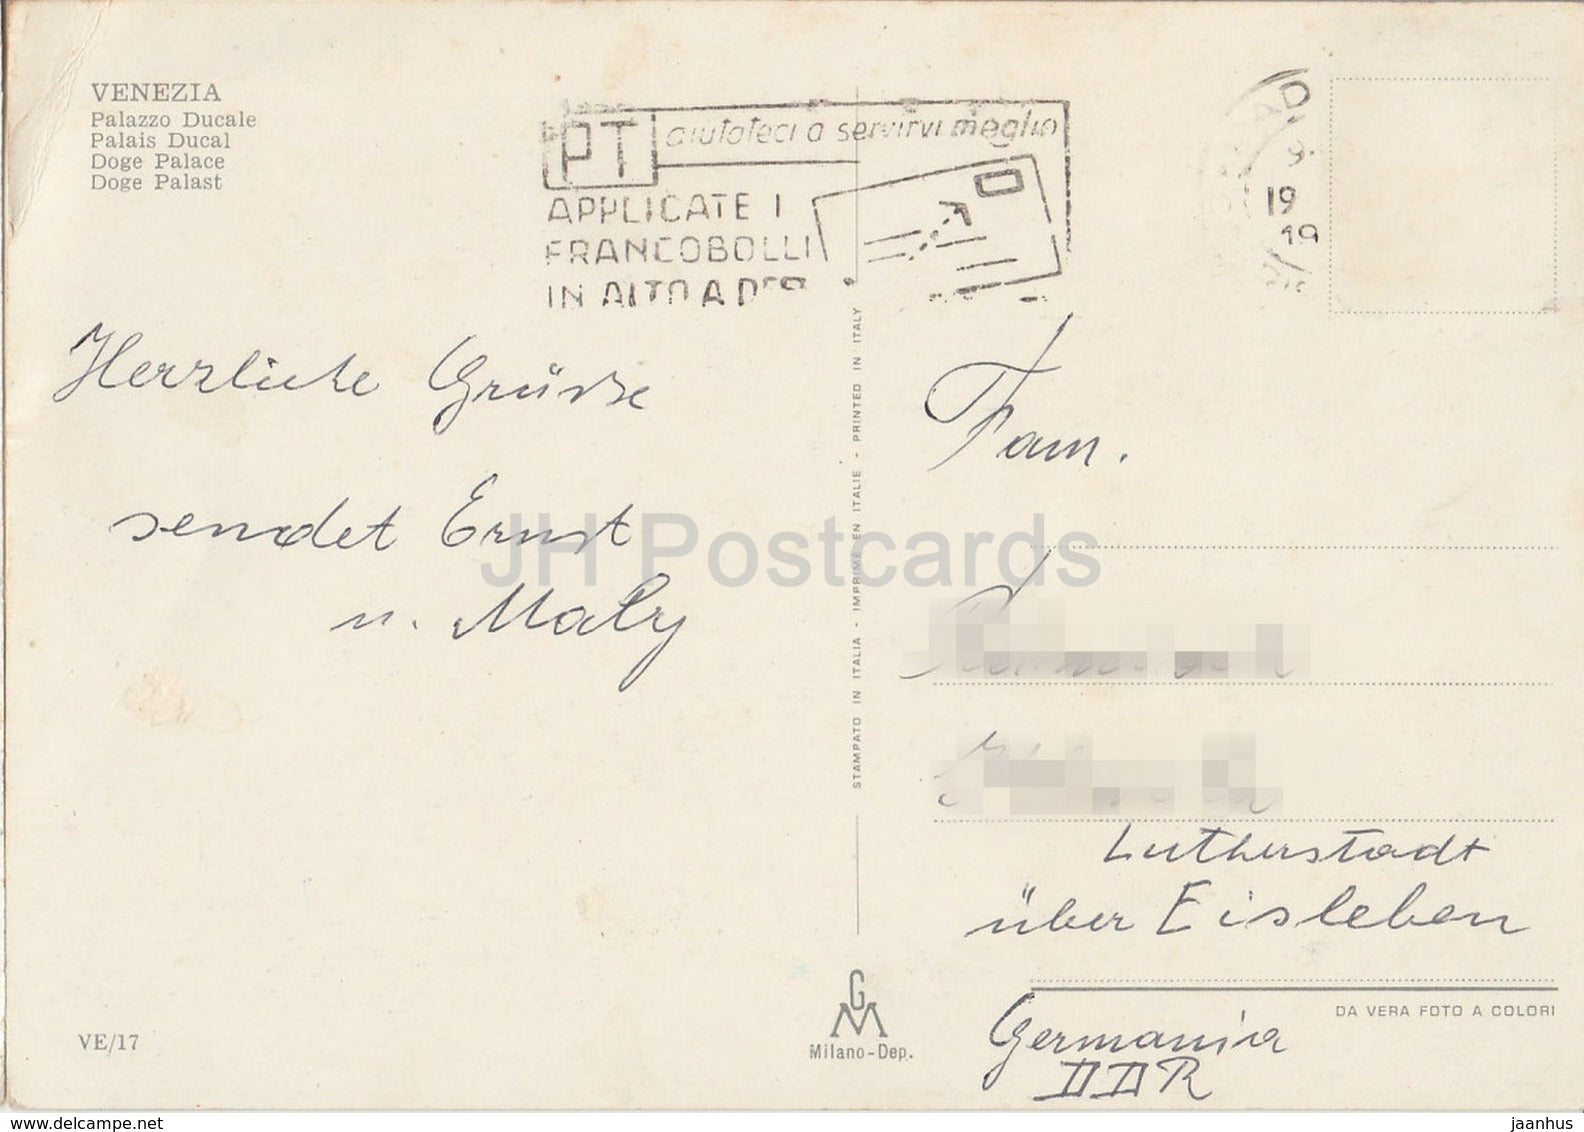 VENEZIA
Palazzo Ducale
Palais Ducal
Doge Palace
Doge Palast
PT aiutateci a servirvi meglio
APPLICATE I
FRANCOBOLLI
IN ALTO A
19
19
Herzliche Grüsse
sendet Ernst
u. Maly
JH Postcards
STAMPATO IN ITALIA - IMPRIMÉ EN ITALIE - PRINTED IN ITALY
Fam.
Lutherstadt
über Eisleben
Germania
DDR
DA VERA FOTO A COLORI
VE/17
GM
Milano-Dep.
www.delcampe.net
jaanhus